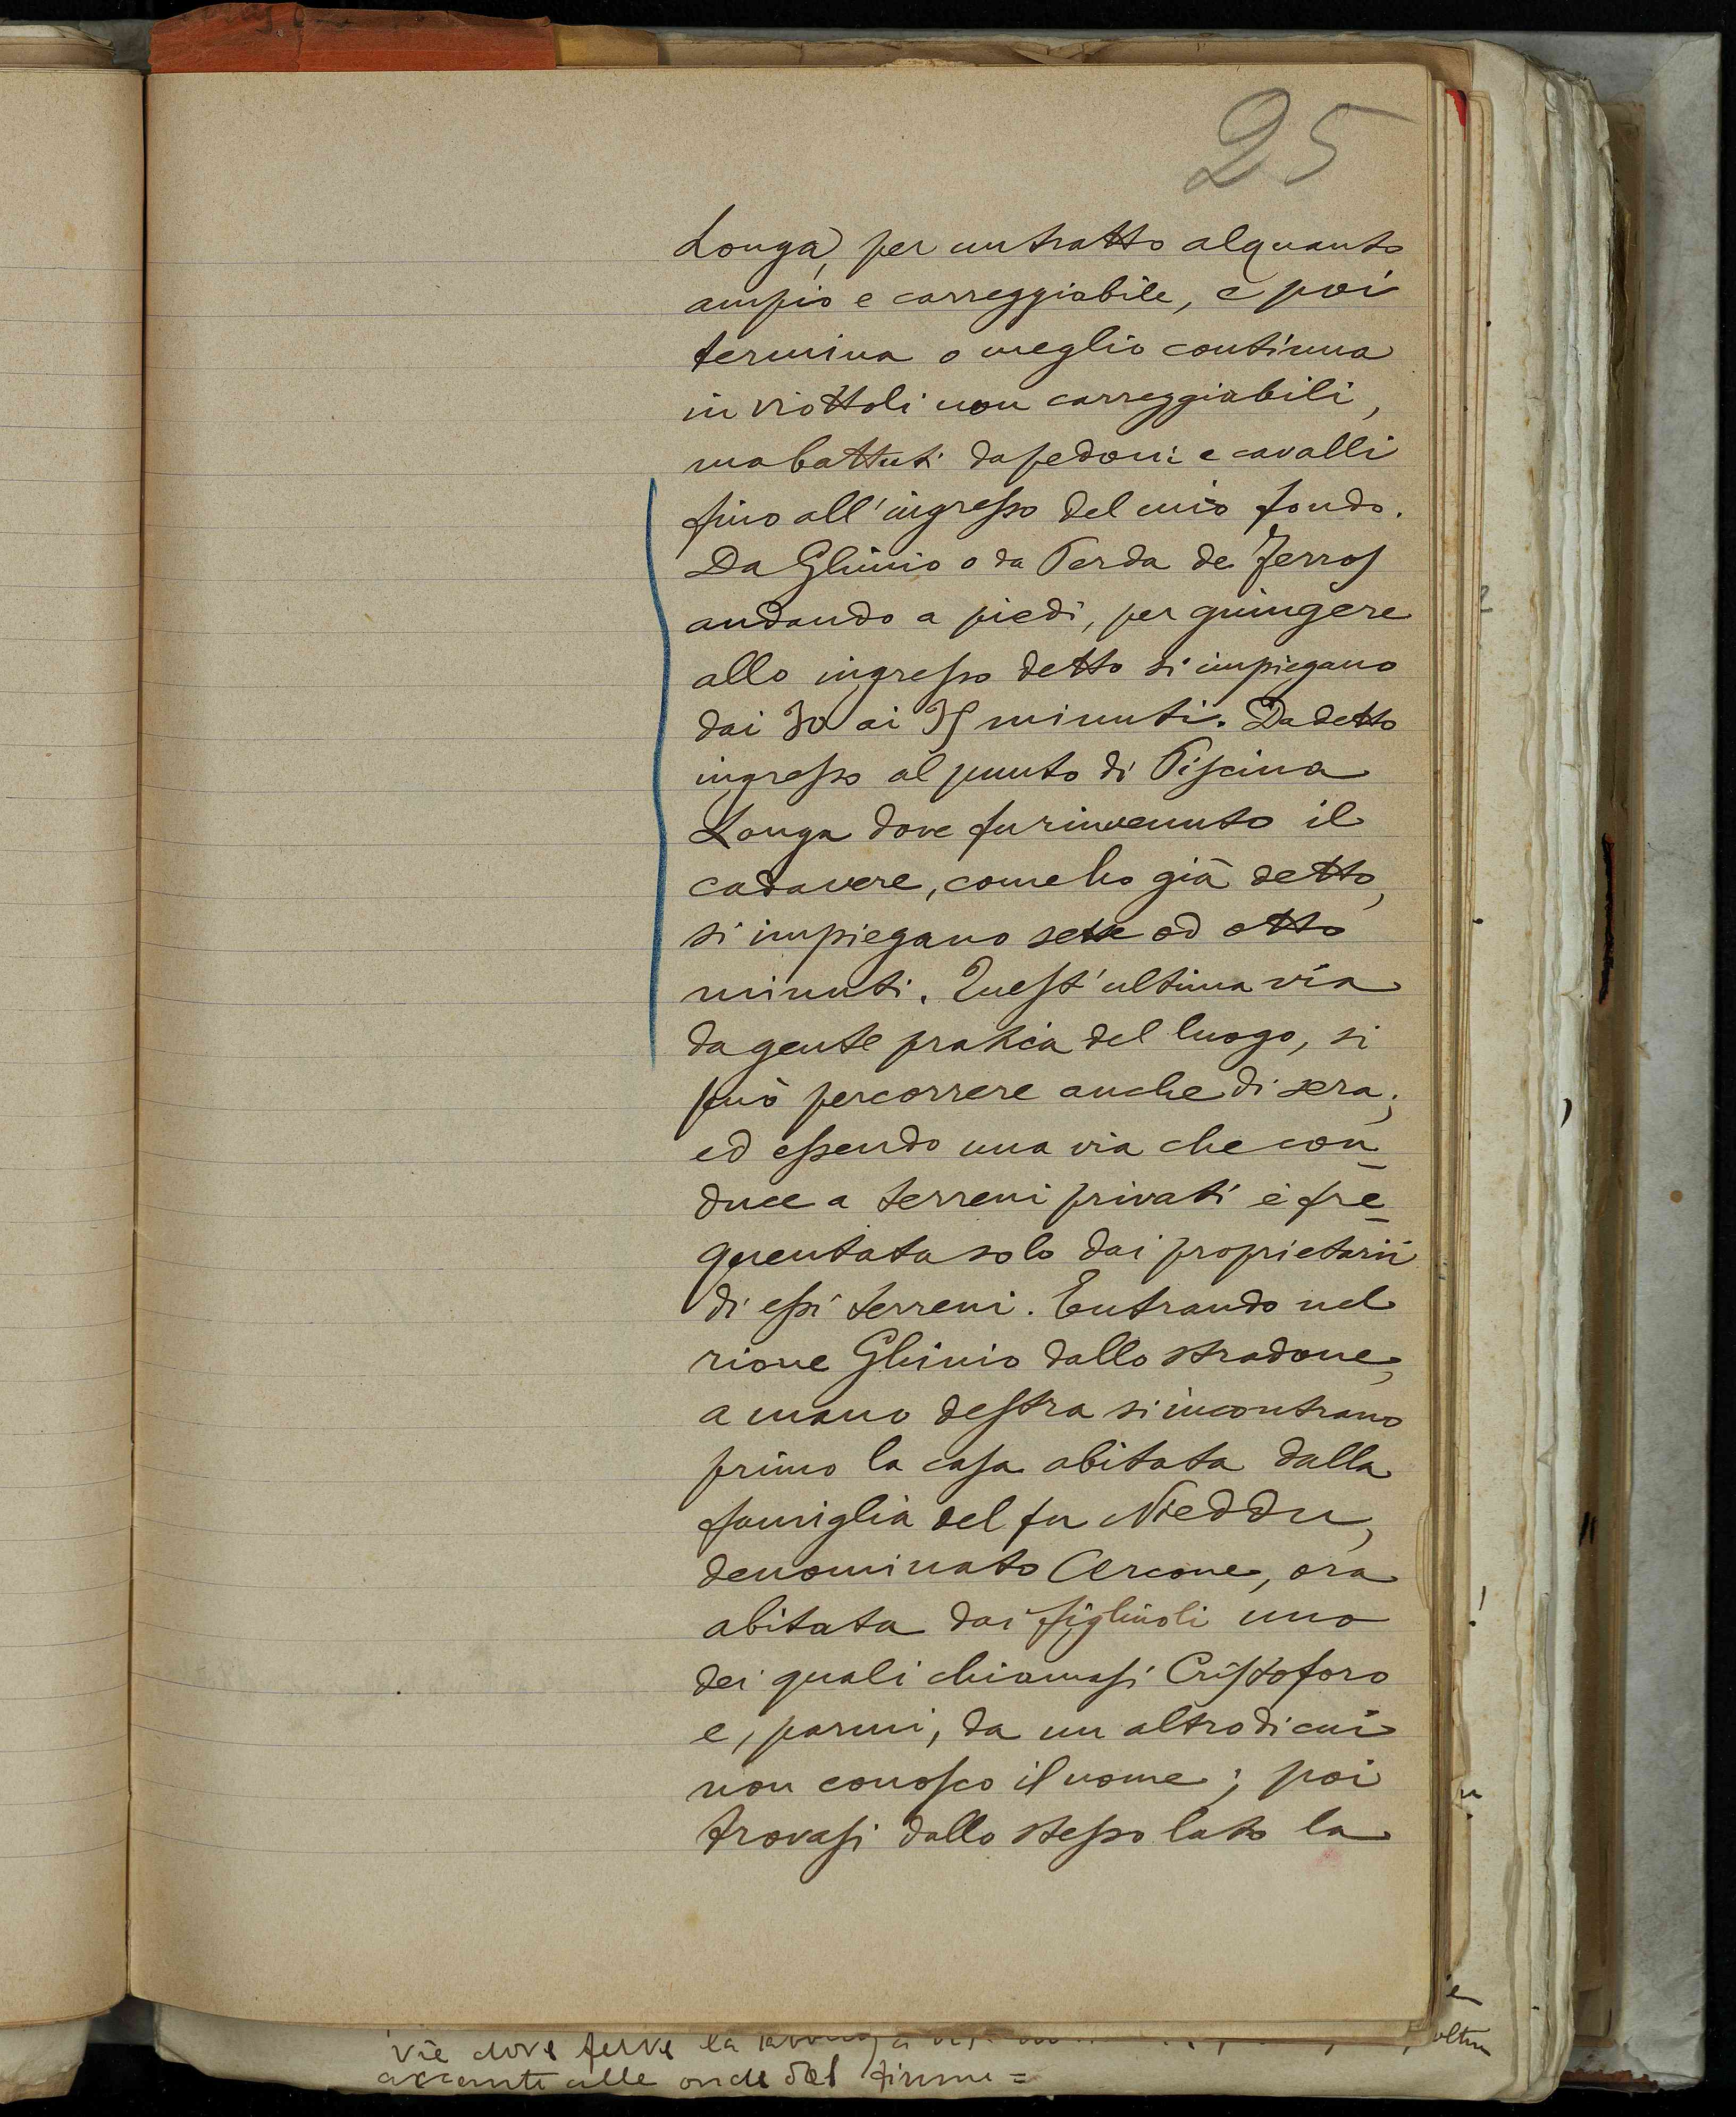 25
Longa, per un tratto alquanto
ampio e carreggiabile, e poi
termina o meglio continua
in viottoli non carreggiabili,
ma battuti da pedoni e cavalli
fino all'ingresso del mio fondo.
Da Ghinio o da Perda de Ferros
andando a piedi, per giungere
allo ingresso detto si impiegano
dai 30 ai 35 minuti. Da detto
ingresso al punto di Piscina
Longa dove fu rinvenuto il
cadavere, come ho già detto,
si impiegano sette od otto
minuti. Quest'ultima via
da gente pratica del luogo, si
può percorrere anche di sera;
ed essendo una via che con-
duce a terreni privati è fre-
quentata solo dai proprietarii
di essi terreni. Entrando nel
rione Ghinio dallo stradone,
a mano destra si incontrano
primo la casa abitata dalla
famiglia del fu Nieddu,
denominato Arcone, ora
abitata dai figliuoli uno
dei quali chiamasi Cristoforo
e, parmi, da un altro di cui
non conosco il nome; poi
trovasi dallo stesso lato la
vie dove ferve la
alle onde del fiume =